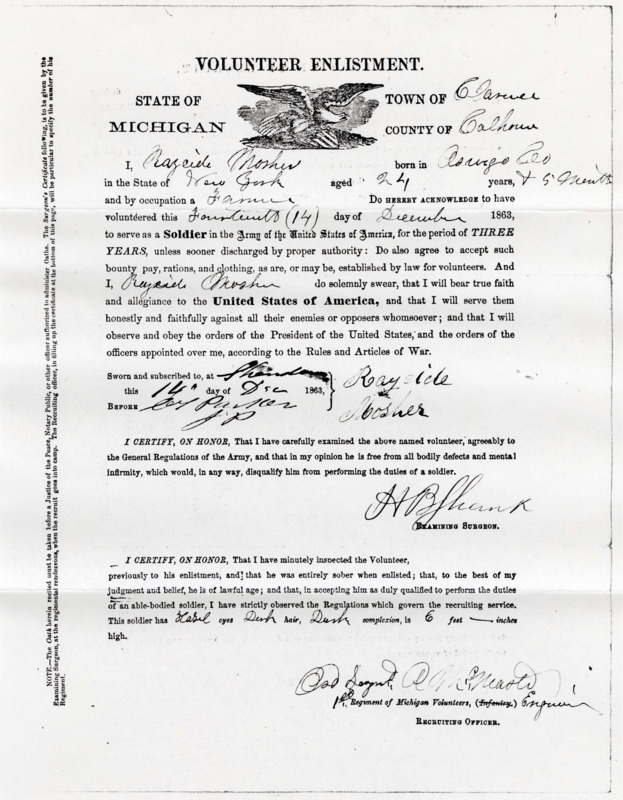 VOLUNTEER ENLISTMENT.
STATE OF MICHIGAN
TOWN OF Clarence
COUNTY OF Calhoun
I, Rayside Mosher born in Co
in the State of New York aged 24 years, & 5 Months
and by occupation a Farmer Do HEREBY ACKNOWLEDGE to have
volunteered this Fourteenth (14) day of December 1863,
to serve as a Soldier in the Army of the United States of America, for the period of THREE
YEARS, unless sooner discharged by proper authority: Do also agree to accept such
bounty pay, rations, and clothing, as are, or may be, established by law for volunteers. And
I, Rayside Mosher do solemnly swear, that I will bear true faith
and allegiance to the United States of America, and that I will serve them
honestly and faithfully against all their enemies or opposers whomsoever; and that I will
observe and obey the orders of the President of the United States, and the orders of the
officers appointed over me, according to the Rules and Articles of War.
Sworn and subscribed to, at
this 14th day of Dec 1863,
BEFORE Parker
JP
Rayside
Mosher
I CERTIFY, ON HONOR, That I have carefully examined the above named volunteer, agreeably to
the General Regulations of the Army, and that in my opinion he is free from all bodily defects and mental
infirmity, which would, in any way, disqualify him from performing the duties of a soldier.
H B Shank
EXAMINING SURGEON.
I CERTIFY, ON HONOR, That I have minutely inspected the Volunteer,
previously to his enlistment, and that he was entirely sober when enlisted; that, to the best of my
judgment and belief, he is of lawful age; and that, in accepting him as duly qualified to perform the duties
of an able-bodied soldier, I have strictly observed the Regulations which govern the recruiting service.
This soldier has Hazel eyes Dark hair, Dark complexion, is 6 feet — inches
high.
1st Regiment of Michigan Volunteers, (Infantry.) Engineers
RECRUITING OFFICER.
NOTE.—The Oath herein recited must be taken before a Justice of the Peace, Notary Public, or other officer authorized to administer Oaths. The Surgeon's Certificate following, is to be given by the
Examining Surgeon, at the regimental rendezvous, when the recruit goes into camp. The Recruiting officer, in filling up the certificate at the bottom of this page, will be particular to specify the number of his
Regiment.